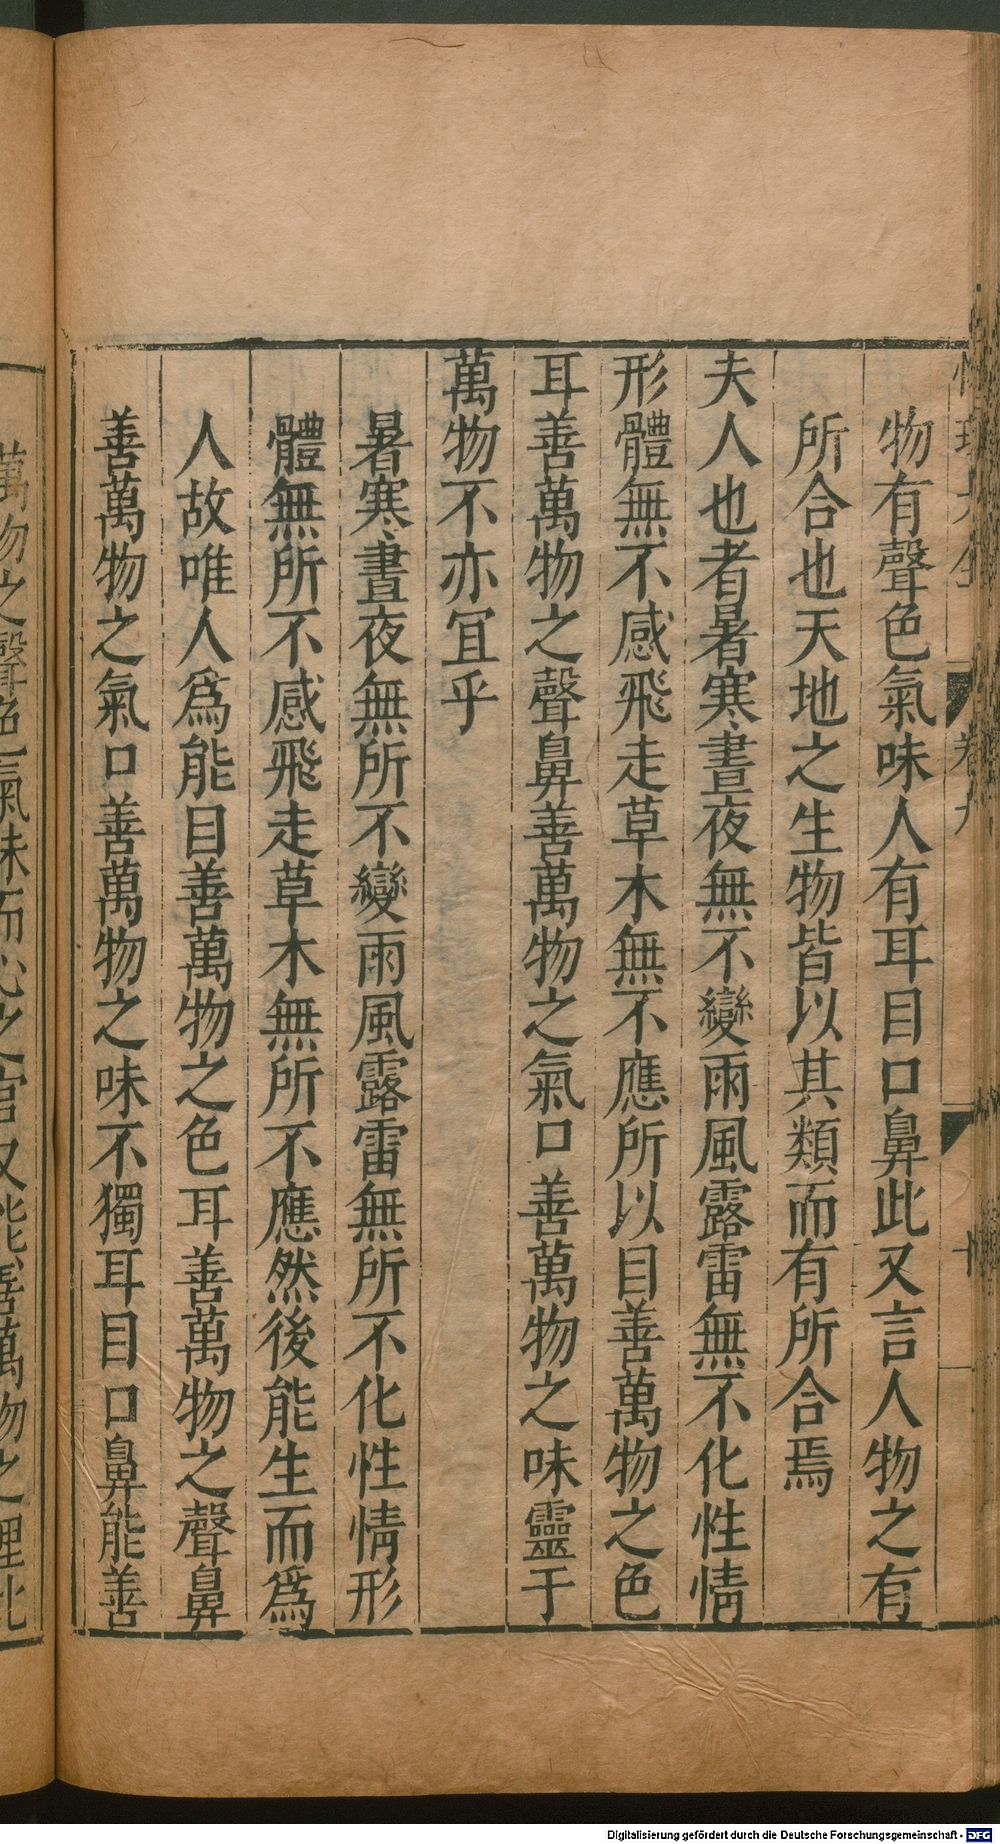 物有聲色氣味人有耳目口鼻此又言人物之有
所合也天地之生物皆以其類而有所合焉
夫人也者暑寒晝夜無不變雨風露雷無不化性情
形體無不感飛走草木無不應所以目善萬物之色
耳善萬物之聲鼻善萬物之氣口善萬物之味靈于
萬物不亦宜乎
暑寒晝夜無所不變雨風露雷無所不化性情形
體無所不感飛走草木無所不應然後能生而爲
人故唯人爲能目善萬物之色耳善萬物之聲鼻
善萬物之氣口善萬物之味不獨耳目口鼻能善
萬物之聲色氣味而心之官又能善萬物之理此
卷九
Digitalisierung gefördert durch die Deutsche Forschungsgemeinschaft - DFG